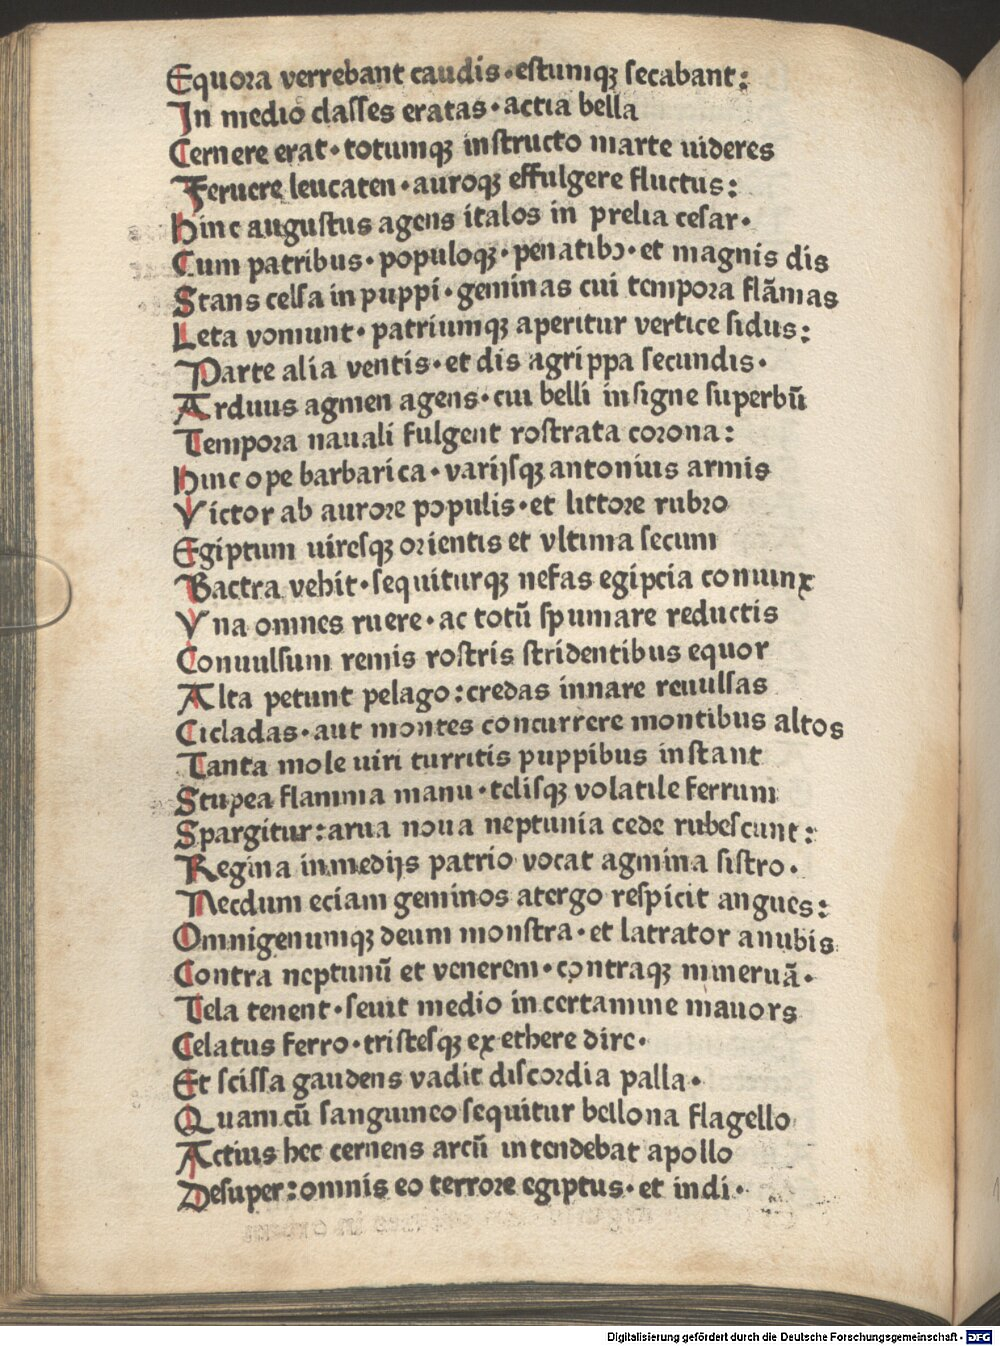 Equora verrebant caudis·estumqꝫ secabant:
In medio classes eratas·actia bella
Cernere erat·totumqꝫ instructo marte uideres
Feruere leucaten·auroqꝫ effulgere fluctus:
Hinc augustus agens italos in prelia cesar·
Cum patribus·populoqꝫ·penatibꝰ·et magnis dis
Stans celsa in puppi·geminas cui tempora flãmas
Leta vomunt·patriumqꝫ aperitur vertice sidus:
Parte alia ventis·et dis agrippa secundis·
Arduus agmen agens·cui belli insigne superbũ
Tempora nauali fulgent rostrata corona:
Hinc ope barbarica·varijsqꝫ antonius armis
Victor ab aurore populis·et littore rubro
Egiptum uiresqꝫ orientis et vltima secum
Bactra vehit·sequiturqꝫ nefas egipcia coniunx
Vna omnes ruere·ac totũ spumare reductis
Conuulsum remis rostris stridentibus equor
Alta petunt pelago:credas innare reuulsas
Cicladas·aut montes concurrere montibus altos
Tanta mole uiri turritis puppibus instant
Stupea flamma manu·telisqꝫ volatile ferrum
Spargitur:arua noua neptunia cede rubescunt:
Regina in medijs patrio vocat agmina sistro·
Necdum eciam geminos atergo respicit angues:
Omnigenumqꝫ deum monstra·et latrator anubis
Contra neptunũ et venerem·contraqꝫ mineruã·
Tela tenent·seuit medio in certamine mauors
Celatus ferro·tristesqꝫ ex ethere dire·
Et scissa gaudens vadit discordia palla·
Quam cũ sanguineo sequitur bellona flagello
Actius hec cernens arcũ intendebat apollo
Desuper:omnis eo terrore egiptus·et indi·
Digitalisierung gefördert durch die Deutsche Forschungsgemeinschaft - DFG